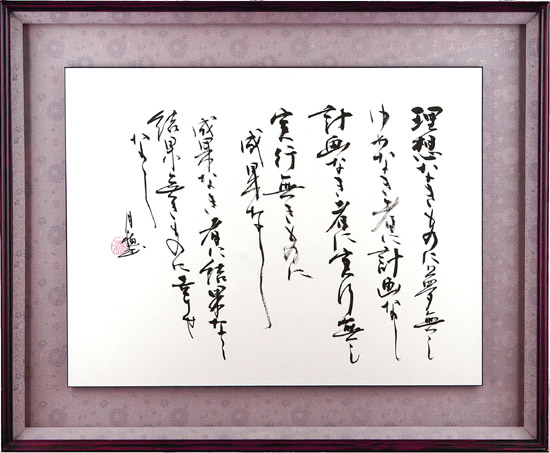 理想なきものに夢無し
ゆめなき者に計画なし
計画なき者に実行無し
実行無きものに
成果なし
成果なき者に結果なし
結果無きものに幸せ
なし